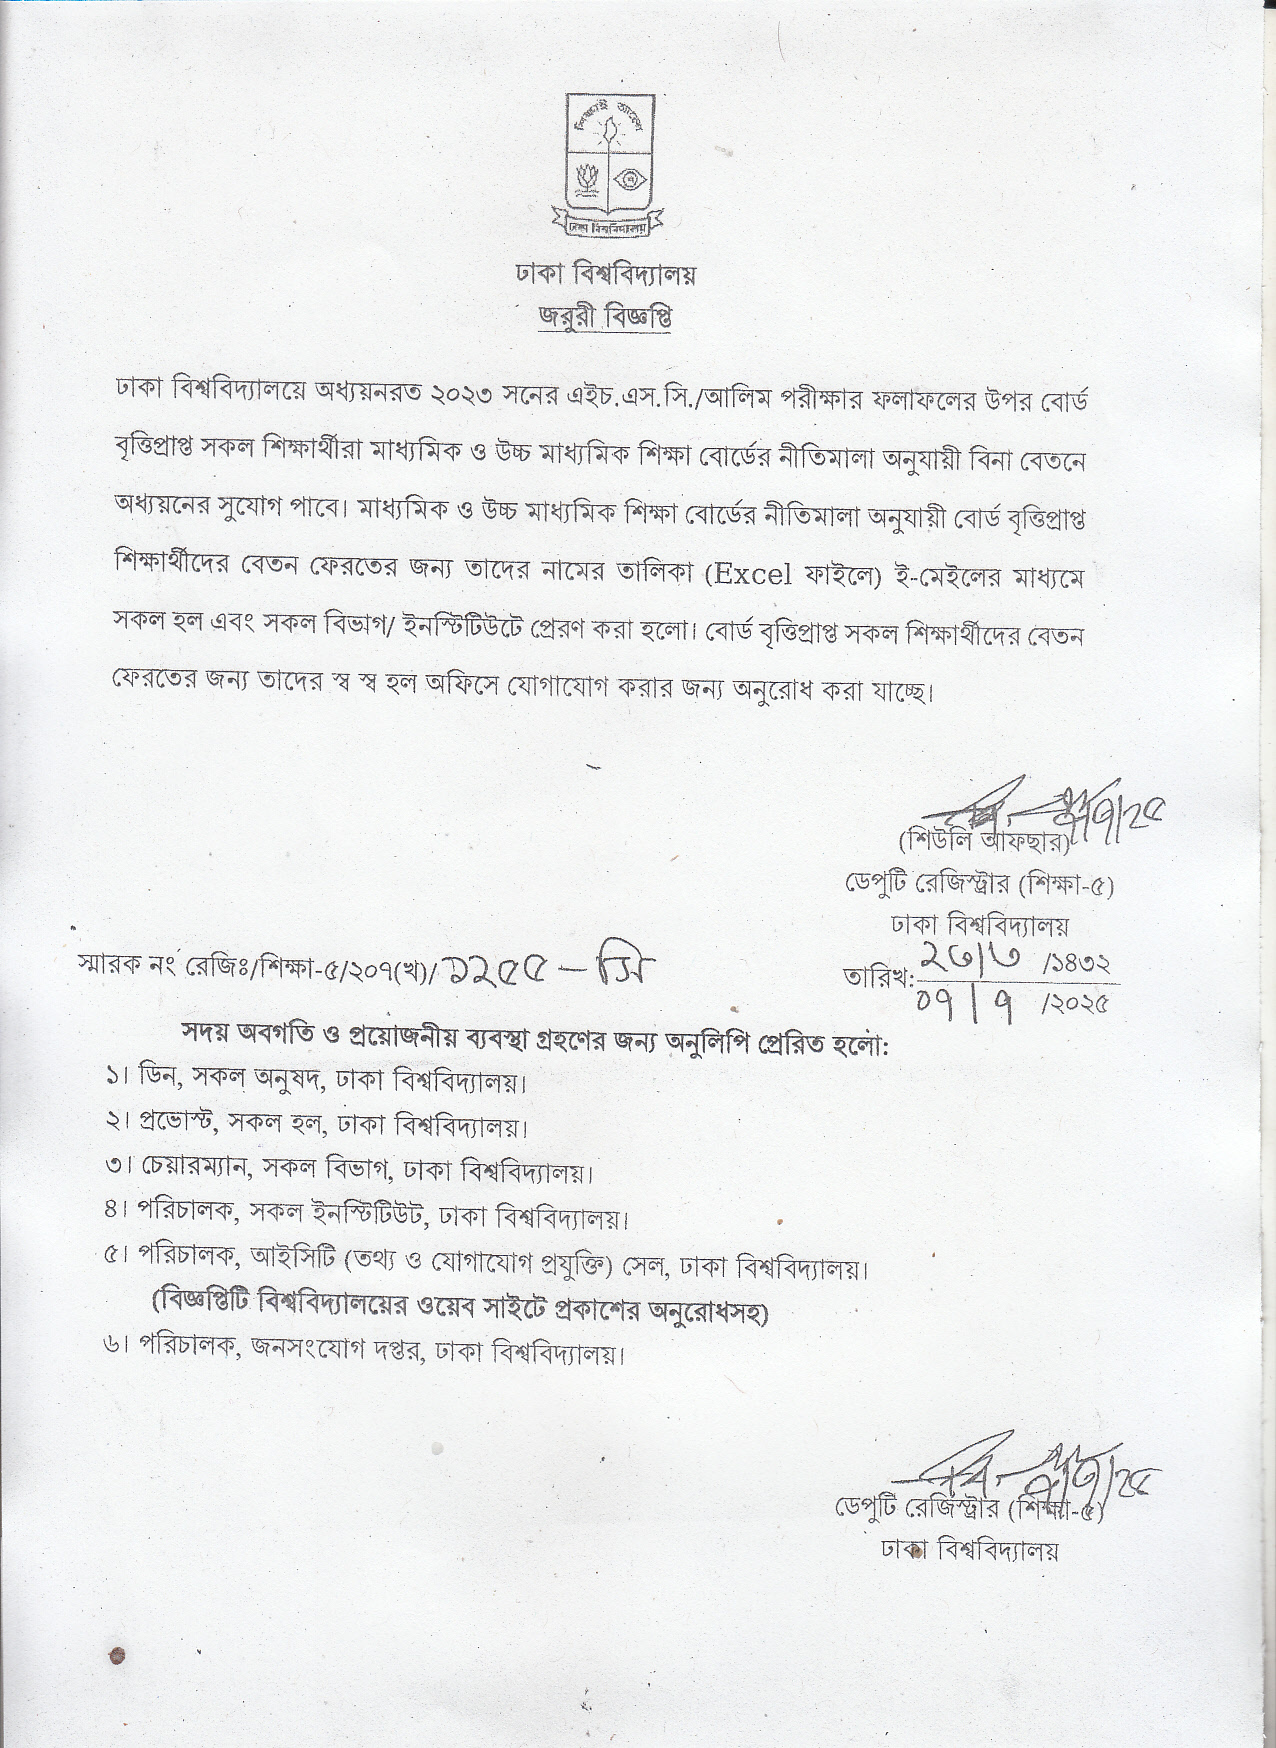 শিক্ষাই আলো
ঢাকা বিশ্ববিদ্যালয়
ঢাকা বিশ্ববিদ্যালয়
জরুরী বিজ্ঞপ্তি
ঢাকা বিশ্ববিদ্যালয়ে অধ্যয়নরত ২০২৩ সনের এইচ.এস.সি./আলিম পরীক্ষার ফলাফলের উপর বোর্ড
বৃত্তিপ্রাপ্ত সকল শিক্ষার্থীরা মাধ্যমিক ও উচ্চ মাধ্যমিক শিক্ষা বোর্ডের নীতিমালা অনুযায়ী বিনা বেতনে
অধ্যয়নের সুযোগ পাবে। মাধ্যমিক ও উচ্চ মাধ্যমিক শিক্ষা বোর্ডের নীতিমালা অনুযায়ী বোর্ড বৃত্তিপ্রাপ্ত
শিক্ষার্থীদের বেতন ফেরতের জন্য তাদের নামের তালিকা (Excel ফাইলে) ই-মেইলের মাধ্যমে
সকল হল এবং সকল বিভাগ/ ইনস্টিটিউটে প্রেরণ করা হলো। বোর্ড বৃত্তিপ্রাপ্ত সকল শিক্ষার্থীদের বেতন
ফেরতের জন্য তাদের স্ব স্ব হল অফিসে যোগাযোগ করার জন্য অনুরোধ করা যাচ্ছে।
(শিউলি আফছার)
ডেপুটি রেজিস্ট্রার (শিক্ষা-৫)
ঢাকা বিশ্ববিদ্যালয়
স্মারক নং রেজিঃ/শিক্ষা-৫/২০৭(খ)/ ১২৫৫ – সি
তারিখ: ২৩/৩ /১৪৩২
০৭/৭ /২০২৫
সদয় অবগতি ও প্রয়োজনীয় ব্যবস্থা গ্রহণের জন্য অনুলিপি প্রেরিত হলো:
১। ডিন, সকল অনুষদ, ঢাকা বিশ্ববিদ্যালয়।
২। প্রভোস্ট, সকল হল, ঢাকা বিশ্ববিদ্যালয়।
৩। চেয়ারম্যান, সকল বিভাগ, ঢাকা বিশ্ববিদ্যালয়।
৪। পরিচালক, সকল ইনস্টিটিউট, ঢাকা বিশ্ববিদ্যালয়।
৫। পরিচালক, আইসিটি (তথ্য ও যোগাযোগ প্রযুক্তি) সেল, ঢাকা বিশ্ববিদ্যালয়।
(বিজ্ঞপ্তিটি বিশ্ববিদ্যালয়ের ওয়েব সাইটে প্রকাশের অনুরোধসহ)
৬। পরিচালক, জনসংযোগ দপ্তর, ঢাকা বিশ্ববিদ্যালয়।
ডেপুটি রেজিস্ট্রার (শিক্ষা-৫)
ঢাকা বিশ্ববিদ্যালয়